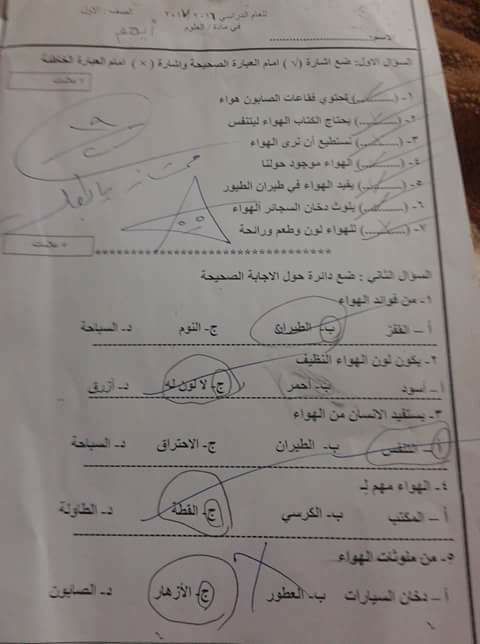 للعام الدراسي ٢٠١٦ / ٢٠١٧ الصف: الأول
في مادة / العلوم
الاسم: ..............................
السؤال الاول: ضع اشارة (√) امام العبارة الصحيحة واشارة (×) امام العبارة الخاطئة
٧ علامات
١- (..........) تحتوي فقاعات الصابون هواء
٢- (..........) يحتاج الكتاب الهواء ليتنفس
٣- (..........) نستطيع أن نرى الهواء
٤- (..........) الهواء موجود حولنا
٥- (..........) يفيد الهواء في طيران الطيور
٦- (..........) يلوث دخان السجائر الهواء
٧- (..........) للهواء لون وطعم ورائحة
٥ علامات
السؤال الثاني: ضع دائرة حول الاجابة الصحيحة
١- من فوائد الهواء
أ – القفز ب- الطيران ج- النوم د- السباحة
٢- يكون لون الهواء النظيف
أ – أسود ب- أحمر ج- لا لون له د- أزرق
٣- يستفيد الانسان من الهواء
أ – التنفس ب- الطيران ج- الاحتراق د- السباحة
٤- الهواء مهم لـ
أ – المكتب ب- الكرسي ج- القطة د- الطاولة
٥- من ملوثات الهواء
أ – دخان السيارات ب- العطور ج- الأزهار د- الصابون